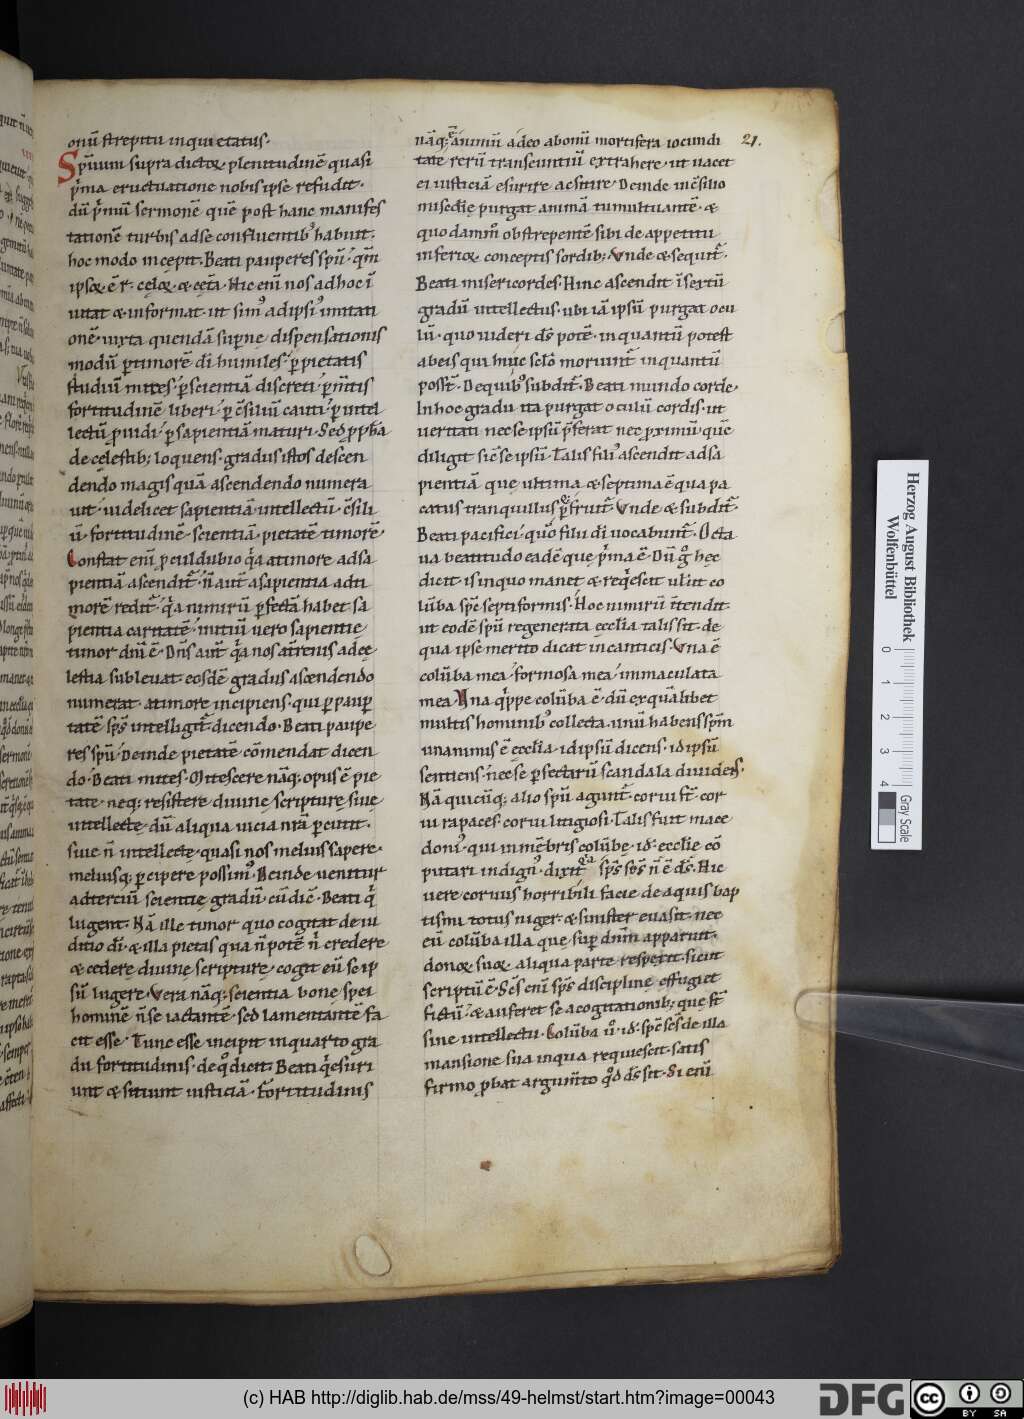 onū strepitu inquietatus.
Spm̄um supra dictoꝝ plenitudinē quasi
p'ma eructuatione nobis ipse refudit.
dū p'mū sermonē quē post hanc manifes
tationē turbis ad se confluentib; habuit.
hoc modo incepit. Beati pauperes spū. qm̄
ipsoꝝ ē r. celoꝝ. & cet̄a. Hic enī nos ad hoc ī
uitat & informat. ut sim' adipsi' imitati
onē. iuxta quendā supne dispensationis
modū. p timorē dī humiles. p pietatis
studiū mites. p scientiā discreti. p m̄tis
fortitudinē liberi. p c̄siliū cauti. p intel
lectū puidi. p sapientiā maturi. Sed ppha
de celestib; loquens. gradus istos descen
dendo magis quā ascendendo numera
uit. uidelicet sapientiā intellectū. c̄sili
ū. fortitudinē. scientiā. pietatē timorē.
Constat enī p culdubio q'a a timore ad sa
pientiā ascendit̄. n̄ aut̄ a sapientia ad ti
morē redit̄. q'a nimirū pfectā habet sa
pientia caritatē. initiū uero sapientie
timor dnī ē. Dn̄s aut̄ q'a nos a t̄renis ad ce
lestia subleuat eosdē gradus ascendendo
numerat. a timore incipiens. qui p paup
tatē sp̄s intelligit̄ dicendo. Beati paupe
res spū. Deinde pietatē cōmendat dicen
do. Beati mites. Mitescere nāq; opus ē pie
tate. neq; resistere diuine scripture siue
intellecte dū aliqua uicia nrā pcutit.
siue n̄ intellecte. quasi nos melius sapere.
meliusq; pcipere possim'. Deinde uenitur
ad tertiū scientie gradū. cū dic̄. Beati q'
lugent. Nā ille timor quo cogitat de iu
ditio dī. & illa pietas qua n̄ potē n' credere
& cedere diuine scripture. cogit eū se ip
sū lugere. Vera nāq; scientia bone spei
hominē n̄ se iactantē. sed lamentantē fa
cit esse. Tunc esse incipit in quarto gra
du fortitudinis. de q° dicit. Beati q' esuri
unt & sitiunt iusticiā. Fortitudinis
nāq; ē animū adeo ab omī mortifera iocundi 21.
tate rerū transeuntiū extrahere. ut uacet
ei iusticiā esurire ac sitire. Deinde in c̄silio
misedie purgat animā tumultuantē. &
quodammō obstrepentē sibi de appetitu
inferioꝝ conceptis sordib;. Vnde & sequit̄.
Beati misericordes. Hinc ascendit ī sextū
gradū intellectus. ubi iā ipsū purgat ocu
lū. quo uideri d̄s potē. inquantū potest
ab eis qui huic sclō moriunt̄ inquantū
poss̄t. De quib; subdit̄. Beati mundo corde.
In hoc gradu ita purgat oculū cordis. ut
ueritati nec se ipsū p̄ferat nec p̄ximū. quē
diligit sic̄ se ipsū. Talis fili' ascendit ad sa
pientiā que ultima & septima ē qua pa
catus tranquillus p̄ fruit̄. Vnde & subdit̄.
Beati pacifici. quō filii dī uocabunt̄. Octa
ua beatitudo eadē que p'ma ē. Dū q° hec
dicit is in quo manet & req'escit ul'it eo
lūba spē septiformis. Hoc nimirū īn̄tendit
ut eodē spū regenerata ecclīa talis sit. de
qua ipse merito dicat in canticis. Vna ē
colūba mea. formosa mea. immaculata
mea. Vna q'ppe colūba ē. dū ex qualibet
multis hominib; collecta. unū habens spm̄
unanimis ē ecclīa. id ipsū dicens. id ipsū
sentiens. nec se p sectarū scandala diuidens.
Nā quicūq; alio spū agunt̄. corui st̄. cor
ui rapaces. corui litigiosi. Talis fuit mace
doni'. qui in mēbris colūbe. id. ecclīe cō
putari indign'. dixit q̄a sp̄s sc̄s n̄ ē d̄s. Hic
uere coruus horribili facie de aquis bap
tismi totus niger. & sinister euasit. nec
eū colūba illa que sup dnm̄ apparuit.
donoꝝ suoꝝ aliqua parte respexit. sicut
scriptū ē. Sc̄s enī sp̄s discipline effugiet
fictū. & auferet se a cogitationib; que st̄
sine intellectu. Colūba u° id. spē sc̄s de illa
mansione sua in qua requiescit. satis
firmo pbat argum̄to q°d d̄s sit. Si enī
Herzog August Bibliothek
Wolfenbüttel
0 1 2 3 4
Gray Scale
(c) HAB http://diglib.hab.de/mss/49-helmst/start.htm?image=00043
DFG
cc BY SA